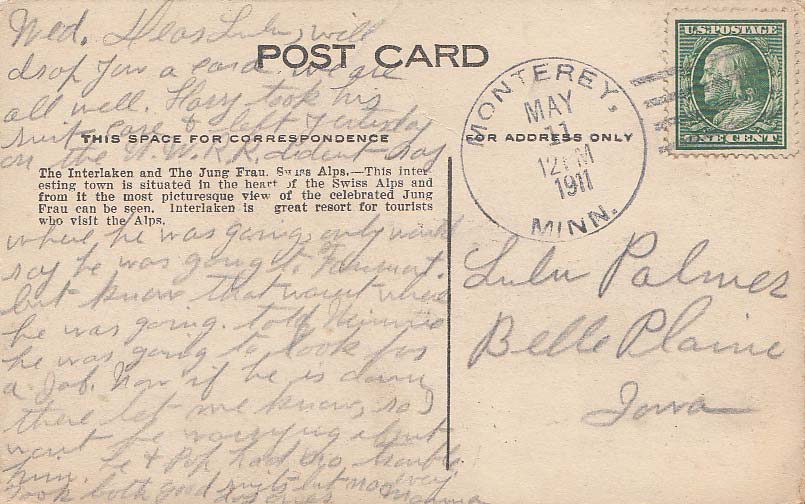 Wed. Dear Lulu, will
drop you a card. we are
all well. Harry took his
suit case & left yesterday
on the N.W.R.R. didn't say
where he was going, only
say he was going to Fairmont.
but know that wasn't where
he was going. told Minnie
he was going to look for
a Job. Now if he is down
there let me know, so I
won't be worrying about
him. he & Pop had no trouble
took both good suits but no
Mamma
POST CARD
THIS SPACE FOR CORRESPONDENCE
FOR ADDRESS ONLY
The Interlaken and The Jung Frau. Swiss Alps.—This inter
esting town is situated in the heart of the Swiss Alps and
from it the most picturesque view of the celebrated Jung
Frau can be seen. Interlaken is great resort for tourists
who visit the Alps.
MONTEREY,
MAY
11
12PM
1911
MINN.
U.S. POSTAGE
ONE CENT
Lulu Palmer
Belle Plaine
Iowa